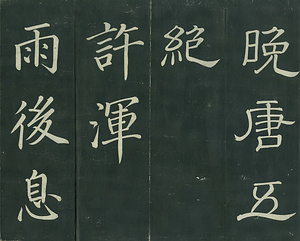 晚唐五
絕
許渾
雨後息